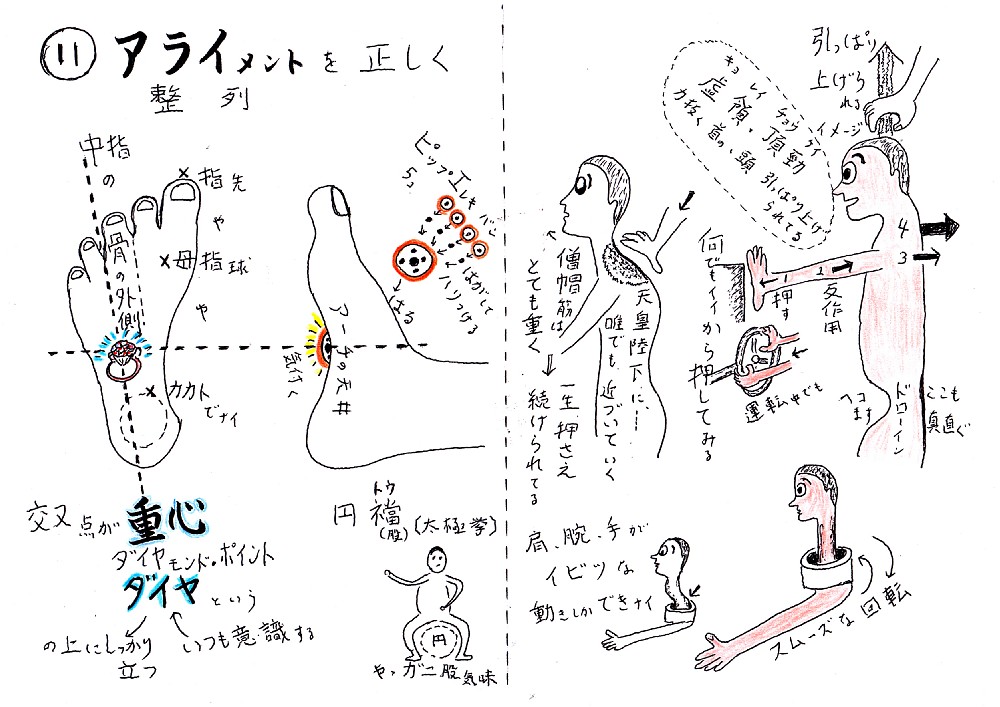 11 アライメントを正しく
整列
中指の
骨の外側
×指先
や
×母指球
や
×カカト
でナイ
交叉点が重心
ダイヤモンド・ポイント
ダイヤという
の上にしっかり
立つ
いつも意識する
ピップ・エレキバン
5コ
はがして
ハリつける
はる
アーチの天井
気付く
円襠(太極拳)
トウ
(股)
円
やゝガニ股気味
引っぱり
上げら
れる
イメージ
キョレイチョウケイ
虚領・頂勁
力抜く首の、頭引っぱり上げ
られてる
天皇陛下に、……
誰でも、近づいていく
僧帽筋は
とても重く
一生押さえ
続けられてる
何でもイイから押してみる
1
押す
2
反作用
3
4
運転中でも
ヘコ
ます
ドローイン
ここも
真直ぐ
肩、腕、手が
イビツな
動きしかできナイ
スムーズな回転